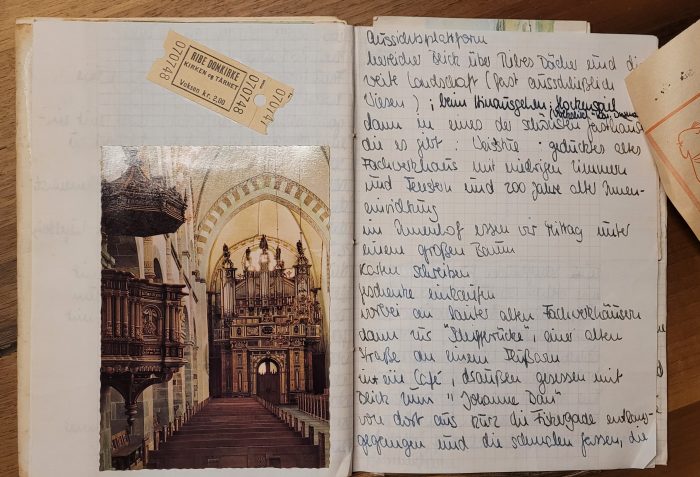 070748
RIBE DOMKIRKE
KIRKEN OG TÅRNET
Voksen kr. 2,00
070748
07074
Aussichtsplattform
herrlicher Blick über Ribes Dächer und die
weite Landschaft (fast ausschließlich
Wiesen); beim Hinausgehen:
dann in eines der schönsten Gasthäuser
die es gibt: Weis Stue: geducktes altes
Fachwerkhaus mit niedrigen Zimmern
und Fenstern und 200 Jahre alter Innen-
einrichtung
im Innenhof essen wir Mittag unter
einem großen Baum
Karten schreiben
Geschenke einkaufen
vorbei an lauter alten Fachwerkhäusern
dann zur "Skibbrücke", einer alten
Straße an einem Flußarm
in ein Café, draußen gesessen mit
Blick zum "Johanne Dan"
von dort aus kurz die Fiskergade entlang-
gegangen und die schmalen Gassen, die